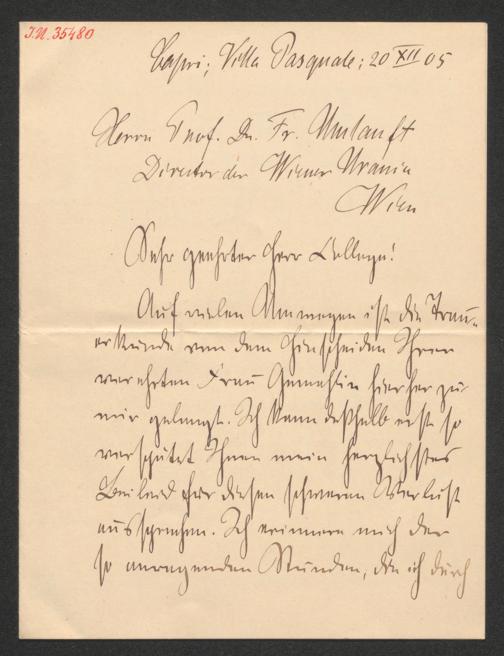 I.N. 35480
Capri; Villa Pasquale; 20 XII 05
Herrn Prof. Dr. Fr. Umlauft
Director der Wiener Urania
Wien
Sehr geehrter Herr College!
Auf vielen Umwegen ist die Trau-
erkunde von dem Hinscheiden Ihrer
verehrten Frau Gemahlin hierher zu
mir gelangt. Ich kann deßhalb erst so
verspätet Ihnen mein herzlichstes
Beileid für diesen schweren Verlust
aussprechen. Ich erinnere mich der
so anregenden Stunden, die ich durch